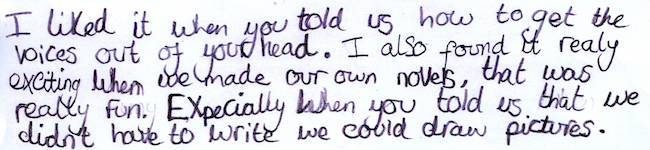 I liked it when you told us how to get the
voices out of your head. I also found it realy
exciting when we made our own novels, that was
really fun. EXpecially when you told us that we
didn't have to write we could draw pictures.